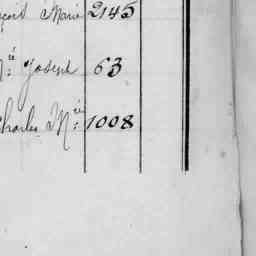 Marie 2145
M.ié Joseph 63
Charles M.ié 1008